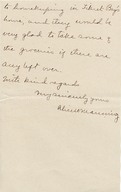 to housekeeping in
home, and they would be
very glad to take some of
the groceries if there are
any left over.
With kind regards
Very sincerely yours
Manning